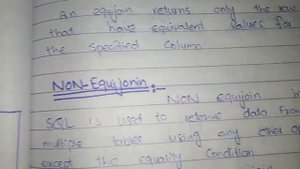 An equijoin returns only the row
that have equivalent values for
the specified column.
NON-Equijonin :-
NON equijoin in
SQL is used to retrieve data From
multiple tables using any other
except the equality condition